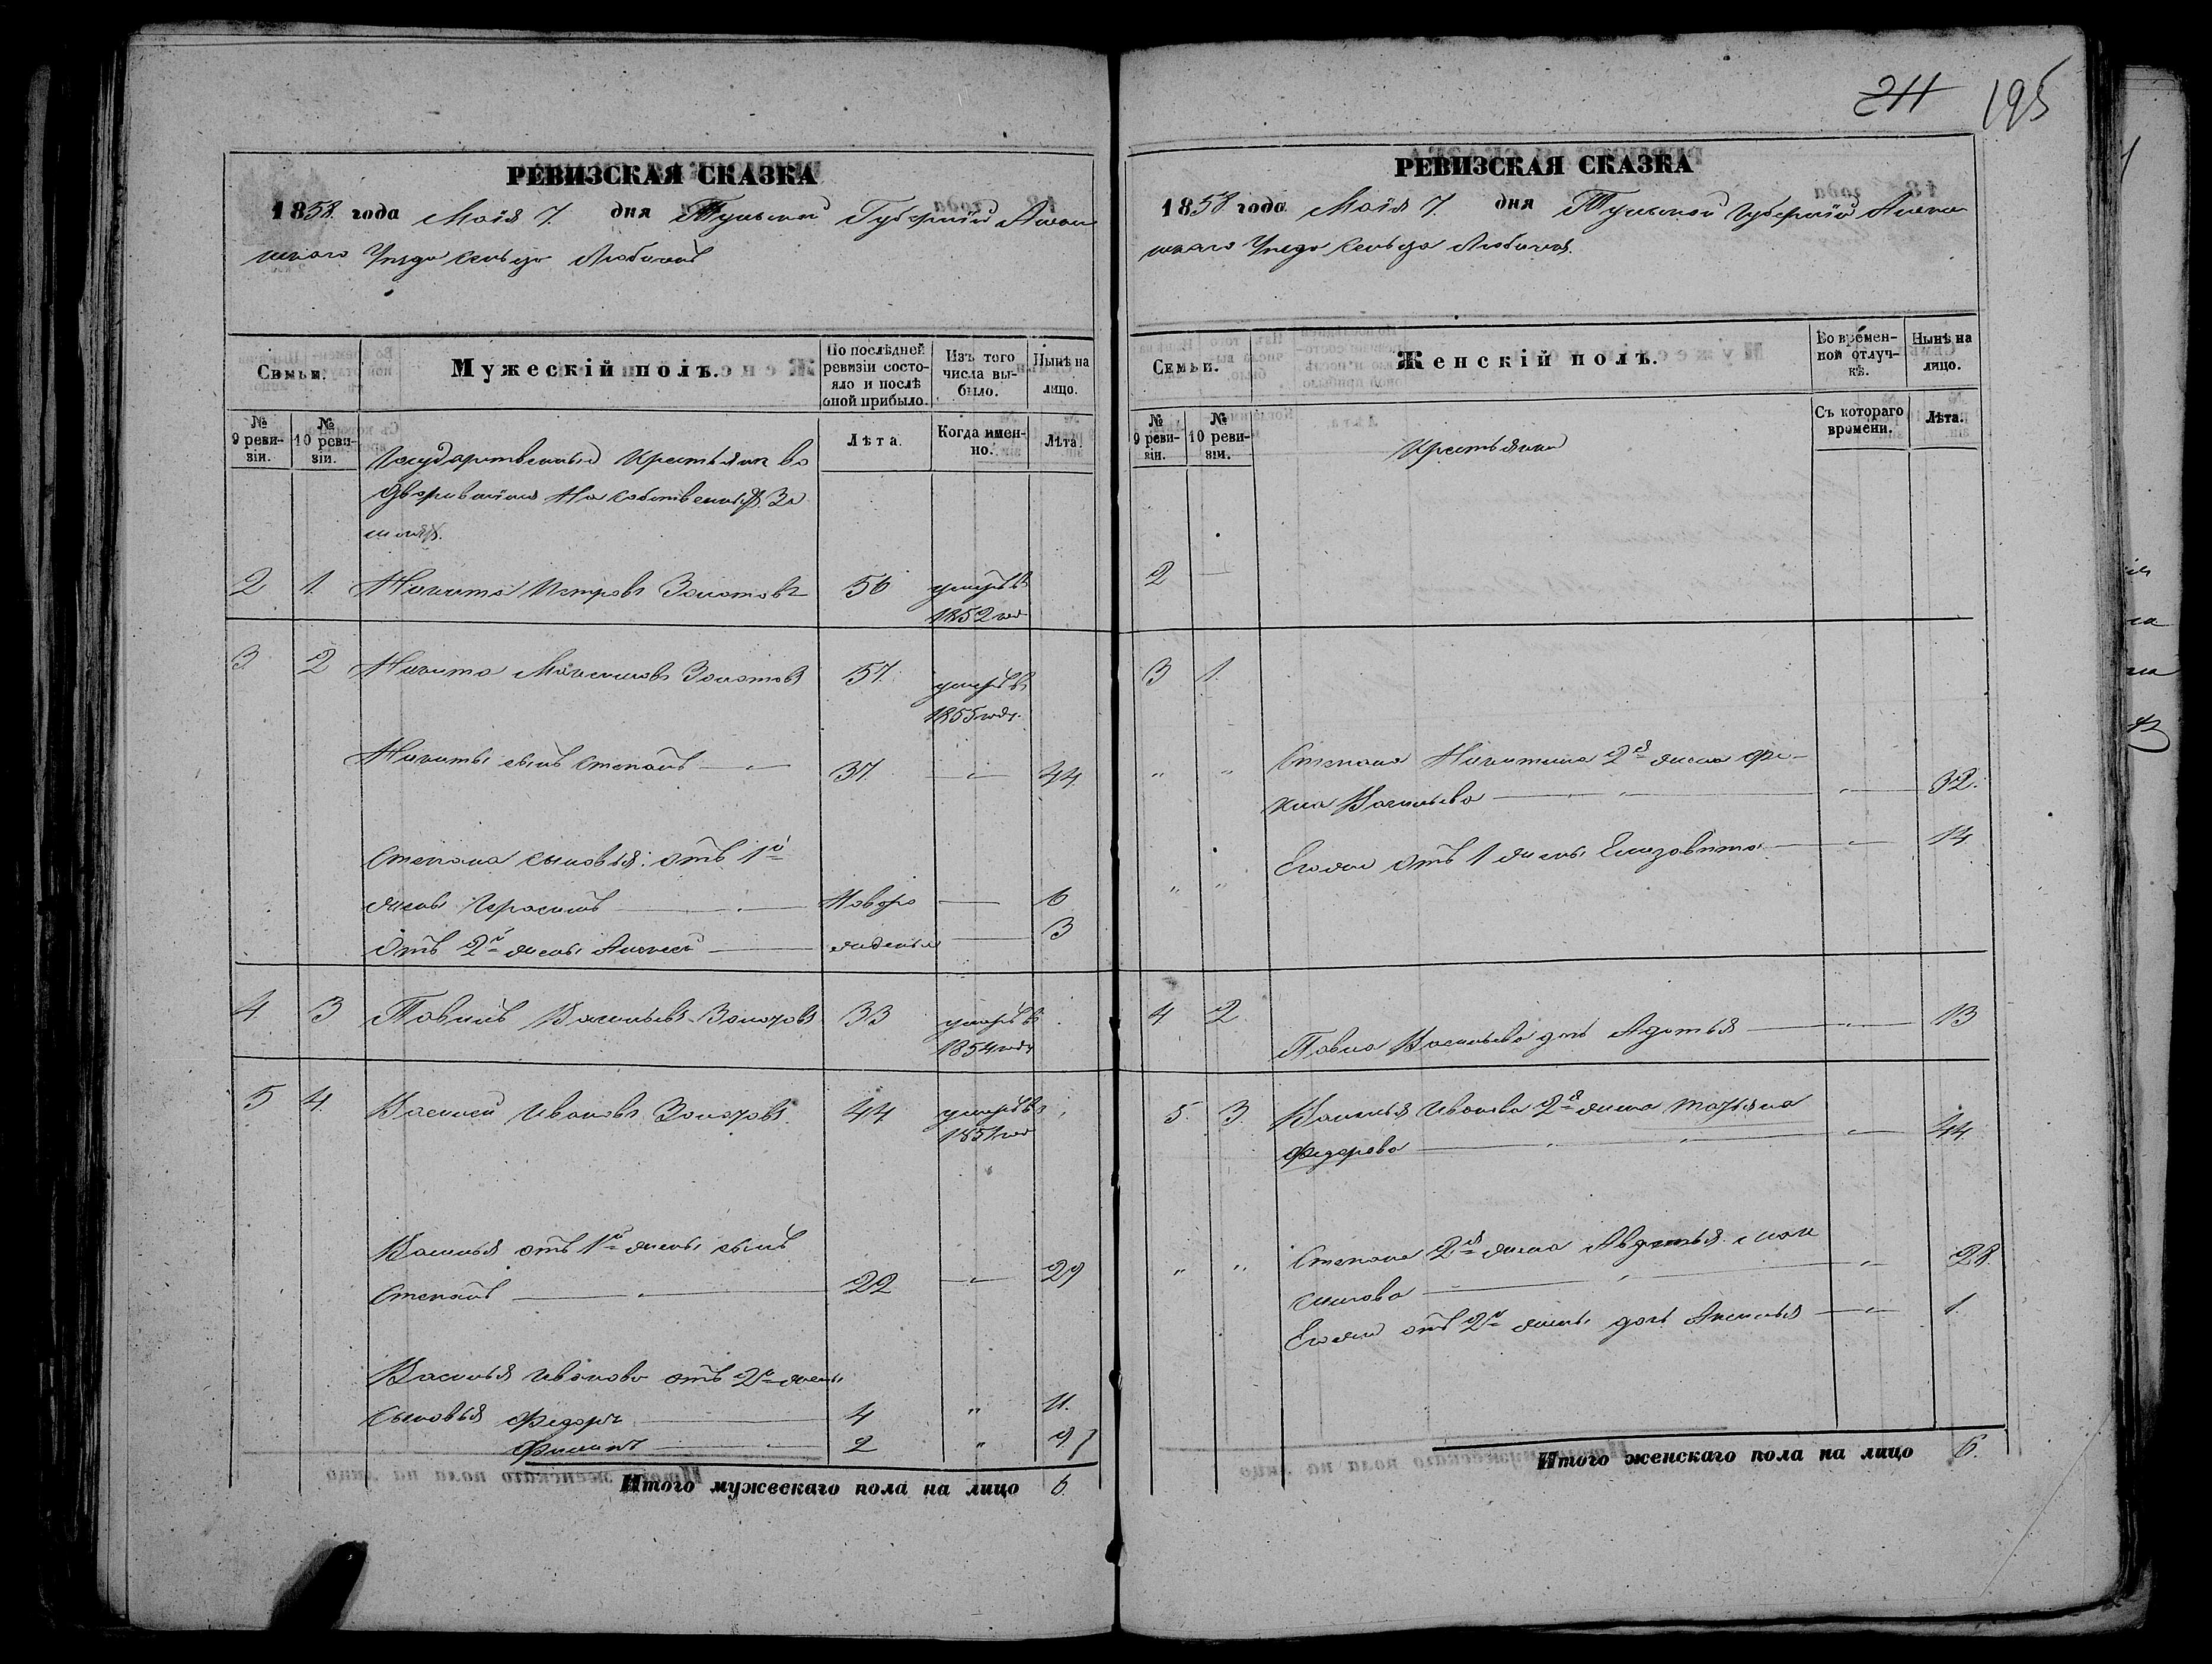 211 195
РЕВИЗСКАЯ СКАЗКА
1858 года Маія 7. дня Тульской Губерніи Алек
сельца
Семьи.
Мужескій полъ.
По послѣдней ревизіи состояло и послѣ оной прибыло.
Изъ того числа выбыло.
Нынѣ на лицо.
№ 9 ревизіи.
№ 10 ревизіи.
Лѣта.
Когда именно.
Лѣта.
Государственные Крестьяне во
дворившіеся на собственныхъ зе
мляхъ.
2 1. Никита Петровъ Золотовъ 56 умеръ въ
1852 год
3 2 Никита Максимовъ Золотовъ 57. умеръ въ
1855 году.
Никиты сынъ Степанъ 37. — " — 44.
Степана сыновья: отъ 1й
жены Герасимъ Новоро — 6
отъ 2й жены Алексей жденые — 3
4 3 Павилъ Васильевъ Золотовъ 33 умеръ въ
1854 году
5 4. Василей Ивановъ Золотовъ. 44 умеръ въ
год
Василья отъ 1й жены сынъ
Степанъ 22 — " — 29
Василья Иванова отъ 2й жены
сыновья Федоръ 4 " 11.
Филипъ 2 " 9
Итого мужескаго пола на лицо 6.
РЕВИЗСКАЯ СКАЗКА
1858 года Маія 7. дня Тульской Губерніи Алек
сельца
Семьи.
Женскій полъ.
Во временной отлучкѣ.
Нынѣ на лицо.
№ 9 ревизіи.
№ 10 ревизіи.
Съ котораго времени.
Лѣта.
Крестьяне
2 —
3 1.
" " Степана Никитина 2я жена Фе-
кла Васильева — " — 32.
Егоже отъ 1 жены Елизовѣта — " — 14
" "
4 2
Павла Васильева дочь Адотья — " — 13
5. 3. Василья Иванова 2я жена Татьяна
Федорова — " — 44
" " Степана 2я жена Авдотья Мак
симова — " — 28.
Егоже отъ 2й жены дочь Аксинья — " — 1.
Итого женскаго пола на лицо 6.